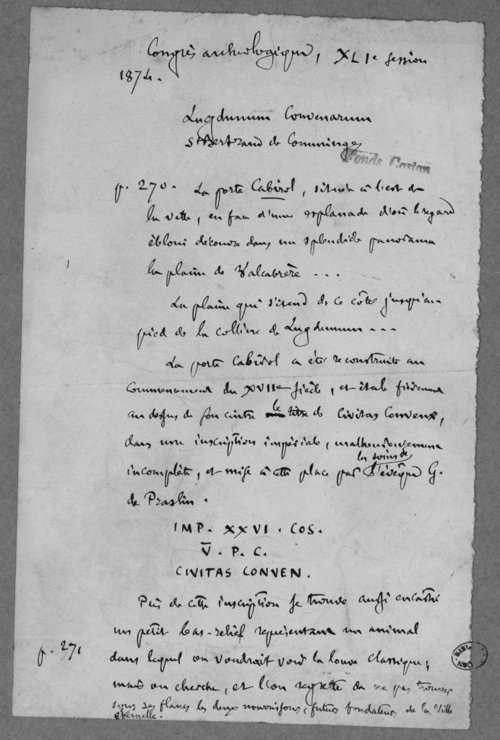 Congrès archéologique, XLIe session
1874.
Lugdunum Convenarum
St Bertrand de Comminges
Fonds Castan
p. 270. La porte Cabirol, située à l'est de
la ville, en face d'une esplanade d'où le regard
ébloui découvre dans un splendide panorama
la plaine de Valcabrère ...
La plaine qui s'étend de ce côté jusqu'au
pied de la colline de Lugdunum ---
La porte Cabirol a été reconstruite au
commencement du XVIIe siècle, et étale fièrement
au dessus de son cintre le titre de Civitas Convenæ,
dans une inscription impériale, malheureusement
incomplète, et mise à cette place par les soins de l'évêque G.
de Praslin.
IMP. XXVI. COS.
V. P. C.
CIVITAS CONVEN.
Près de cette inscription se trouve aussi encastré
un petit bas-relief représentant un animal
p. 271
dans lequel on voudrait voir la louve classique;
mais on cherche, et l'on regrette de ne pas trouver
sous ses flancs les deux nourrissons, futurs fondateurs de la Ville
éternelle.